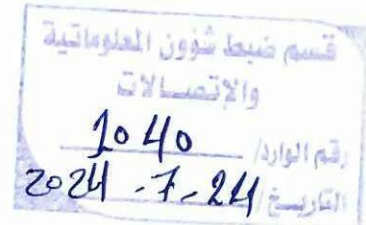 قسم ضبط شؤون المعلوماتية
والإتصالات
رقم الوارد/ 1040
التاريخ/ 24-7-2024